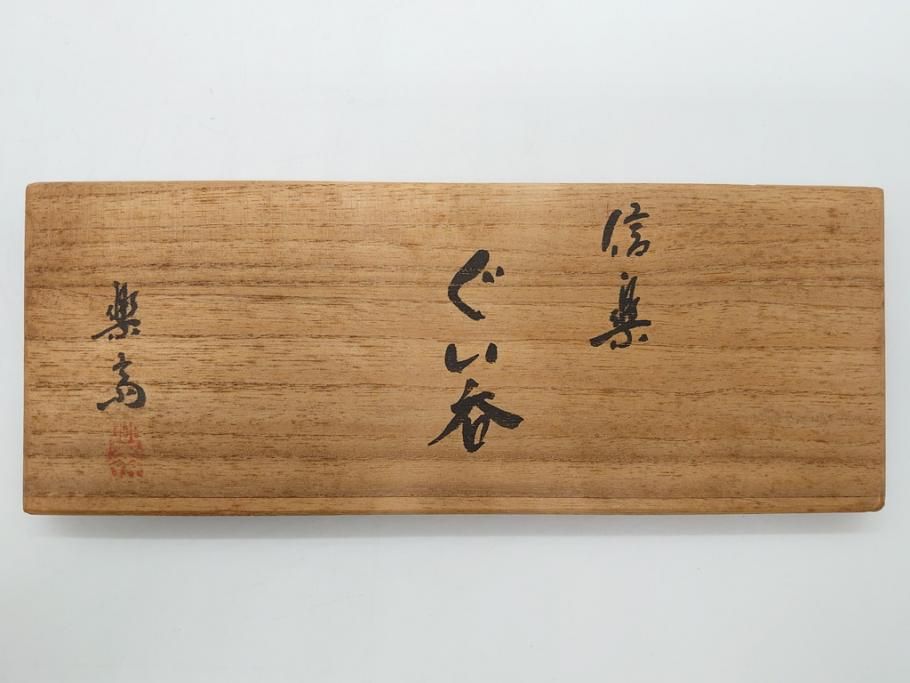 信楽
ぐい呑
楽斎